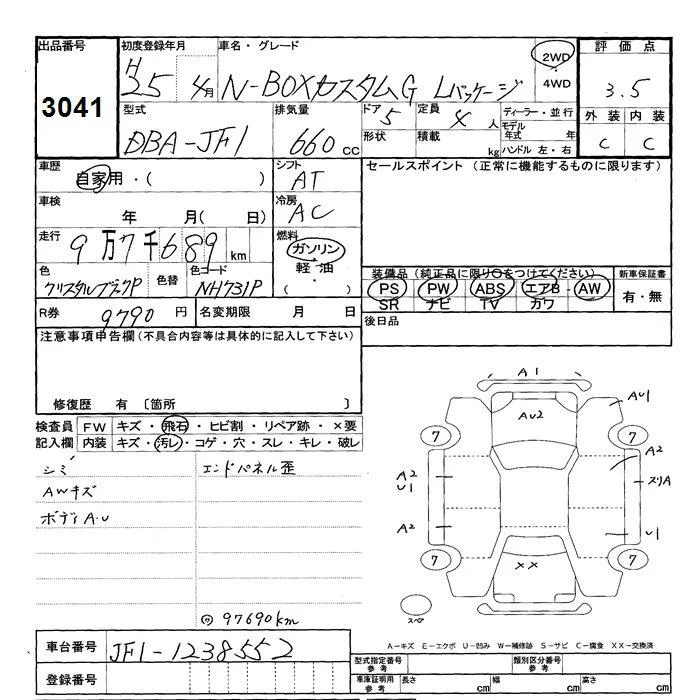 出品番号 初度登録年月 車名・グレード 2WD・4WD 評価点
3041 H25 4月 N-BOXカスタムG Lパッケージ 3.5
型式 排気量 ドア 5 定員 4 人 ディーラー・並行 外装 内装
DBA-JF1 660 cc 形状 積載 kg モデル年式 年 ハンドル 左・右 C C
車歴 シフト セールスポイント (正常に機能するものに限ります)
自家用・( ) AT
車検 冷房
年 月( 日) AC
走行 9万7千689 km 燃料 ガソリン 軽油 ・( )
色 色替 色コード 装備品(純正品に限り○をつけてください) 新車保証書
クリスタルブラックP NH731P PS・PW・ABS・エアB・AW 有・無
SR ナビ TV カワ
R券 9790 円 名変期限 月 日 後日品
注意事項申告欄(不具合内容等は具体的に記入して下さい)
修復歴 有 〔箇所 〕
検査員 FW キズ・飛石・ヒビ割・リペア跡・×要
記入欄 内装 キズ・汚レ・コゲ・穴・スレ・キレ・破レ
シミ エンドパネル歪
AWキズ
ボディA.U
97690km
A1
AU2
AU1
7 7
A2 U1
A2
スリA
A2
U1
XX
7 7
スペア
A-キズ E-エクボ U-凹み W-補修跡 S-サビ C-腐食 XX-交換済
車台番号 JF1-1238552
登録番号
型式指定番号 参考 類別区分番号 参考
車庫証明用 参考 長さ cm 幅 cm 高さ cm